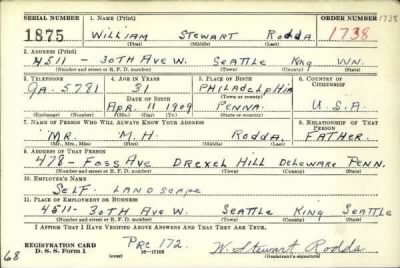 SERIAL NUMBER 1. NAME (Print) ORDER NUMBER 1738
1875 WILLIAM STEWART RODDA 1738
(First) (Middle) (Last)
2. ADDRESS (Print)
4511- 30TH AVE W. SEATTLE KNG WN.
(Number and street or R. F. D. number) (Town) (County) (State)
3. TELEPHONE 4. AGE IN YEARS 5. PLACE OF BIRTH 6. COUNTRY OF CITIZENSHIP
GA. 5781 31 PHILADELPHIA
DATE OF BIRTH (Town or county)
APR. 11 1909 PENNA. U.S.A.
(Exchange) (Number) (Mo.) (Day) (Yr.) (State or country)
7. NAME OF PERSON WHO WILL ALWAYS KNOW YOUR ADDRESS 8. RELATIONSHIP OF THAT PERSON
MR. M.H. RODDA. FATHER.
(Mr., Mrs., Miss) (First) (Middle) (Last)
9. ADDRESS OF THAT PERSON
478- FOSS AVE DREXEL HILL DELEWARE PENN.
(Number and street or R. F. D. number) (Town) (County) (State)
10. EMPLOYER'S NAME
SELF. LANDSCAPE
11. PLACE OF EMPLOYMENT OR BUSINESS
4511- 30TH AVE W. SEATTLE KING SEATTLE
(Number and street or R. F. D. number) (Town) (County) (State)
I AFFIRM THAT I HAVE VERIFIED ABOVE ANSWERS AND THAT THEY ARE TRUE.
REGISTRATION CARD PRC 172. W. Stewart Rodda
D. S. S. Form 1 (over) 16—17105 (Registrant's signature)
68